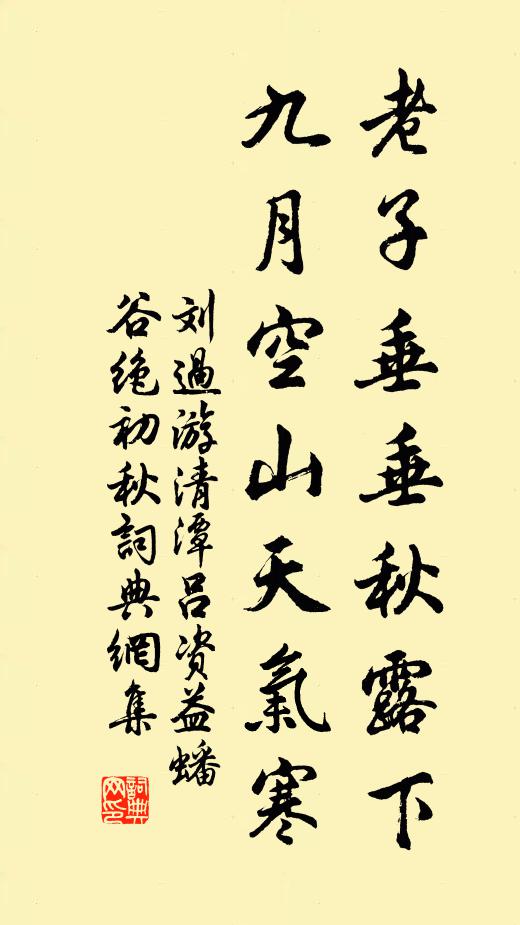 老子垂垂秋露下
九月空山天氣寒
刘過游清潭吕资益蟠
谷绝初秋詞典網集
詞典
网印